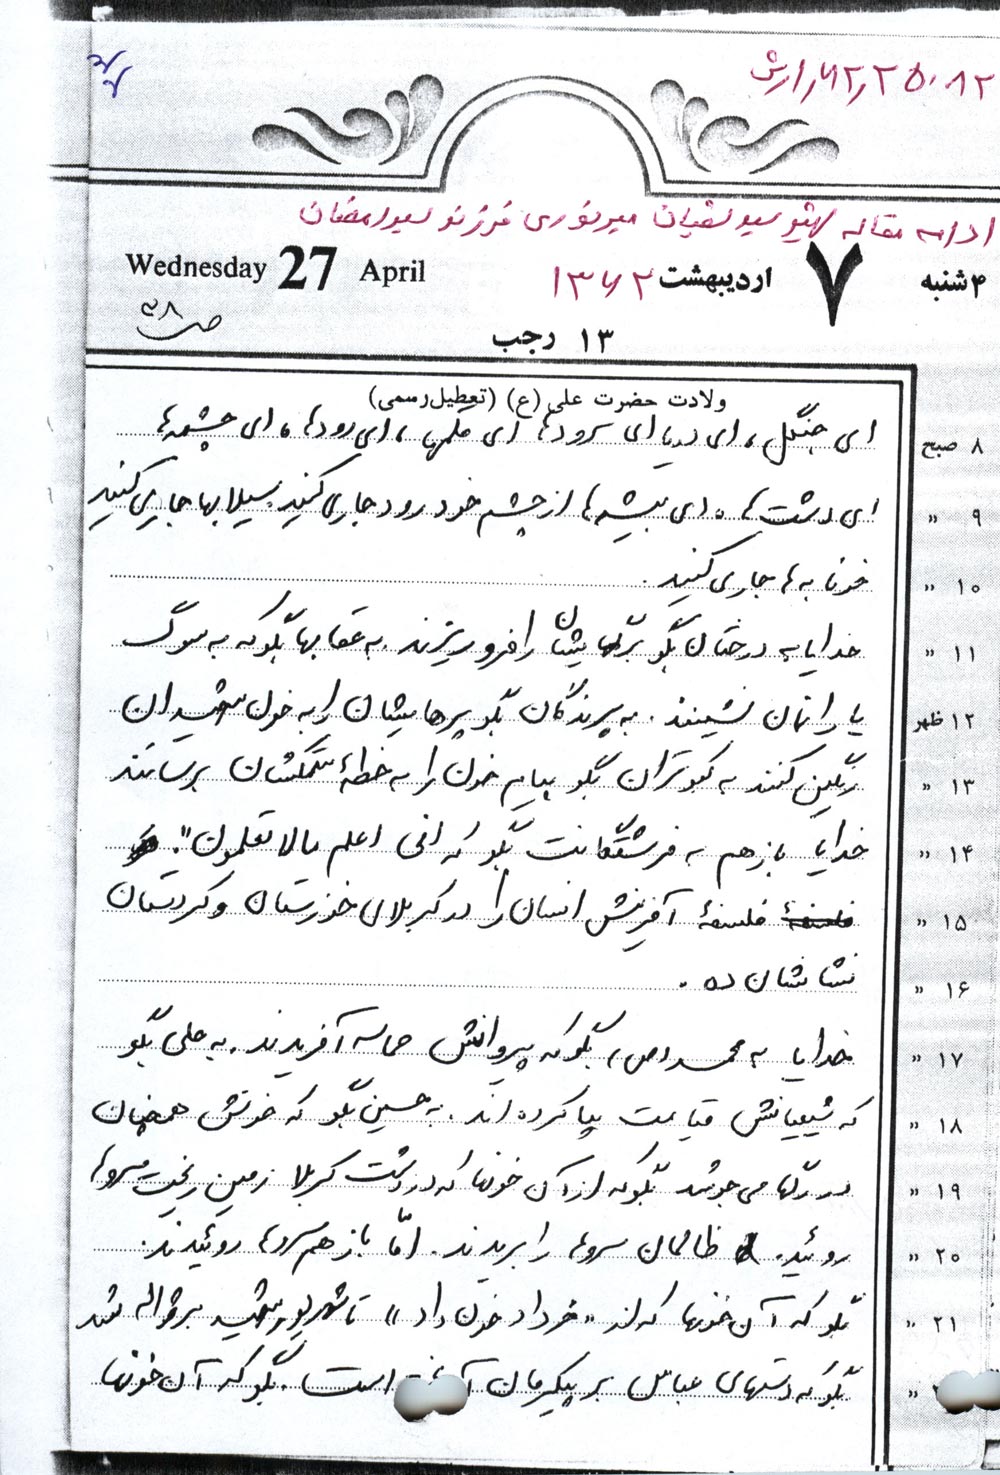 ادامه مقاله شهید سید سفیان میرنوری فرزند سیدرمضان
۴شنبه ۷ اردیبهشت ۱۳۶۲ Wednesday 27 April
۱۳ رجب
ص ۳۸
ولادت حضرت علی (ع) (تعطیل رسمی)
۸ صبح ای جنگل، ای دریا ای سرودها ای گلها، ای رودها، ای چشمه‌ها
۹ " ای دشت‌ها، ای بیشه‌ها از چشم خود رود جاری کنید سیلابها جاری کنید
۱۰ " خونابه‌ها جاری کنید.
۱۱ " خدایا به درختان بگو برگهایشان را فرو ریزند. به عقابها بگو که به سوگ
۱۲ ظهر یارانمان نشینند. به پرندگان بگو پرهایشان را به خون شهیدان
۱۳ " رنگین کنند به کبوتران بگو پیام خون را به خطهٔ ستمکشان برسانند
۱۴ " خدایا باز هم به فرشتگانت بگو که انی اعلم مالا تعلمون".
۱۵ " فلسفهٔ فلسفهٔ آفرینش انسان را در کربلای خوزستان و کردستان
۱۶ " نشانشان ده.
۱۷ " خدایا به محمد (ص) بگو که پیروانش حماسه آفریدند. به علی بگو
۱۸ " که شیعیانش قیامت بپا کرده‌اند. به حسین بگو که خونش همچنان
۱۹ " در رگها می‌جوشد بگو که از آن خونها که در دشت کربلا زمین ریخت سروها
۲۰ " روئید. ظالمان سروها را بریدند. امّا باز هم سروها روئیدند.
۲۱ " بگو که آن خونها که از «خرداد خون داد» تا شهریور شهید
" بگو که دستهای عباس بر پیکرمان است. بگو که آن خونها